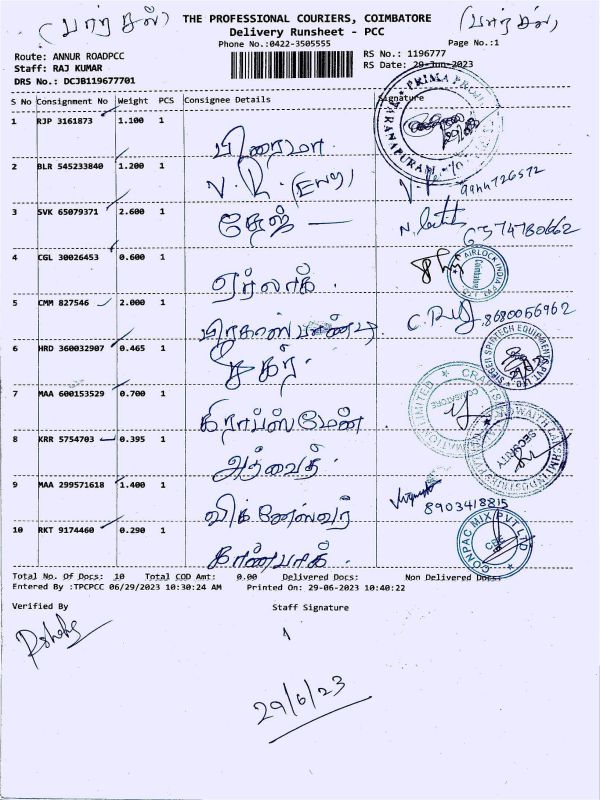 (பார்சல்) THE PROFESSIONAL COURIERS, COIMBATORE (பார்சல்)
Delivery Runsheet - PCC
Phone No.:0422-3505555 Page No.:1
Route: ANNUR ROADPCC RS No.: 1196777
Staff: RAJ KUMAR RS Date: 29-Jun-2023
DRS No.: DCJB119677701
S No Consignment No Weight PCS Consignee Details Signature
1 RJP 3161873 1.100 1 பிரைமா
2 BLR 545233840 1.200 1 V.R. (Eng) 9944726572
3 SVK 65079371 2.600 1 தேஜ் 6374780662
4 CGL 30026453 0.600 1 ஏர்லாக் AIRLOCK INDIA PVT LTD Coimbatore
5 CMM 827546 2.000 1 8680056962
6 HRD 360032907 0.465 1 சுகர் SPINTECH EQUIPMENTS PVT LTD
7 MAA 600153529 0.700 1 கிராப்ஸ்மேன் LIMITED COIMBATORE
8 KRR 5754703 0.395 1 அத்வைத் SECURITY
9 MAA 299571618 1.400 1 விக்னேஸ்வர் 8903418815
10 RKT 9174460 0.290 1 கான்பாக் CONPAC MIX PVT LTD CBE
Total No. Of Docs: 10 Total COD Amt: 0.00 Delivered Docs: Non Delivered Docs:
Entered By :TPCPCC 06/29/2023 10:30:24 AM Printed On: 29-06-2023 10:40:22
Verified By Staff Signature
29/6/23